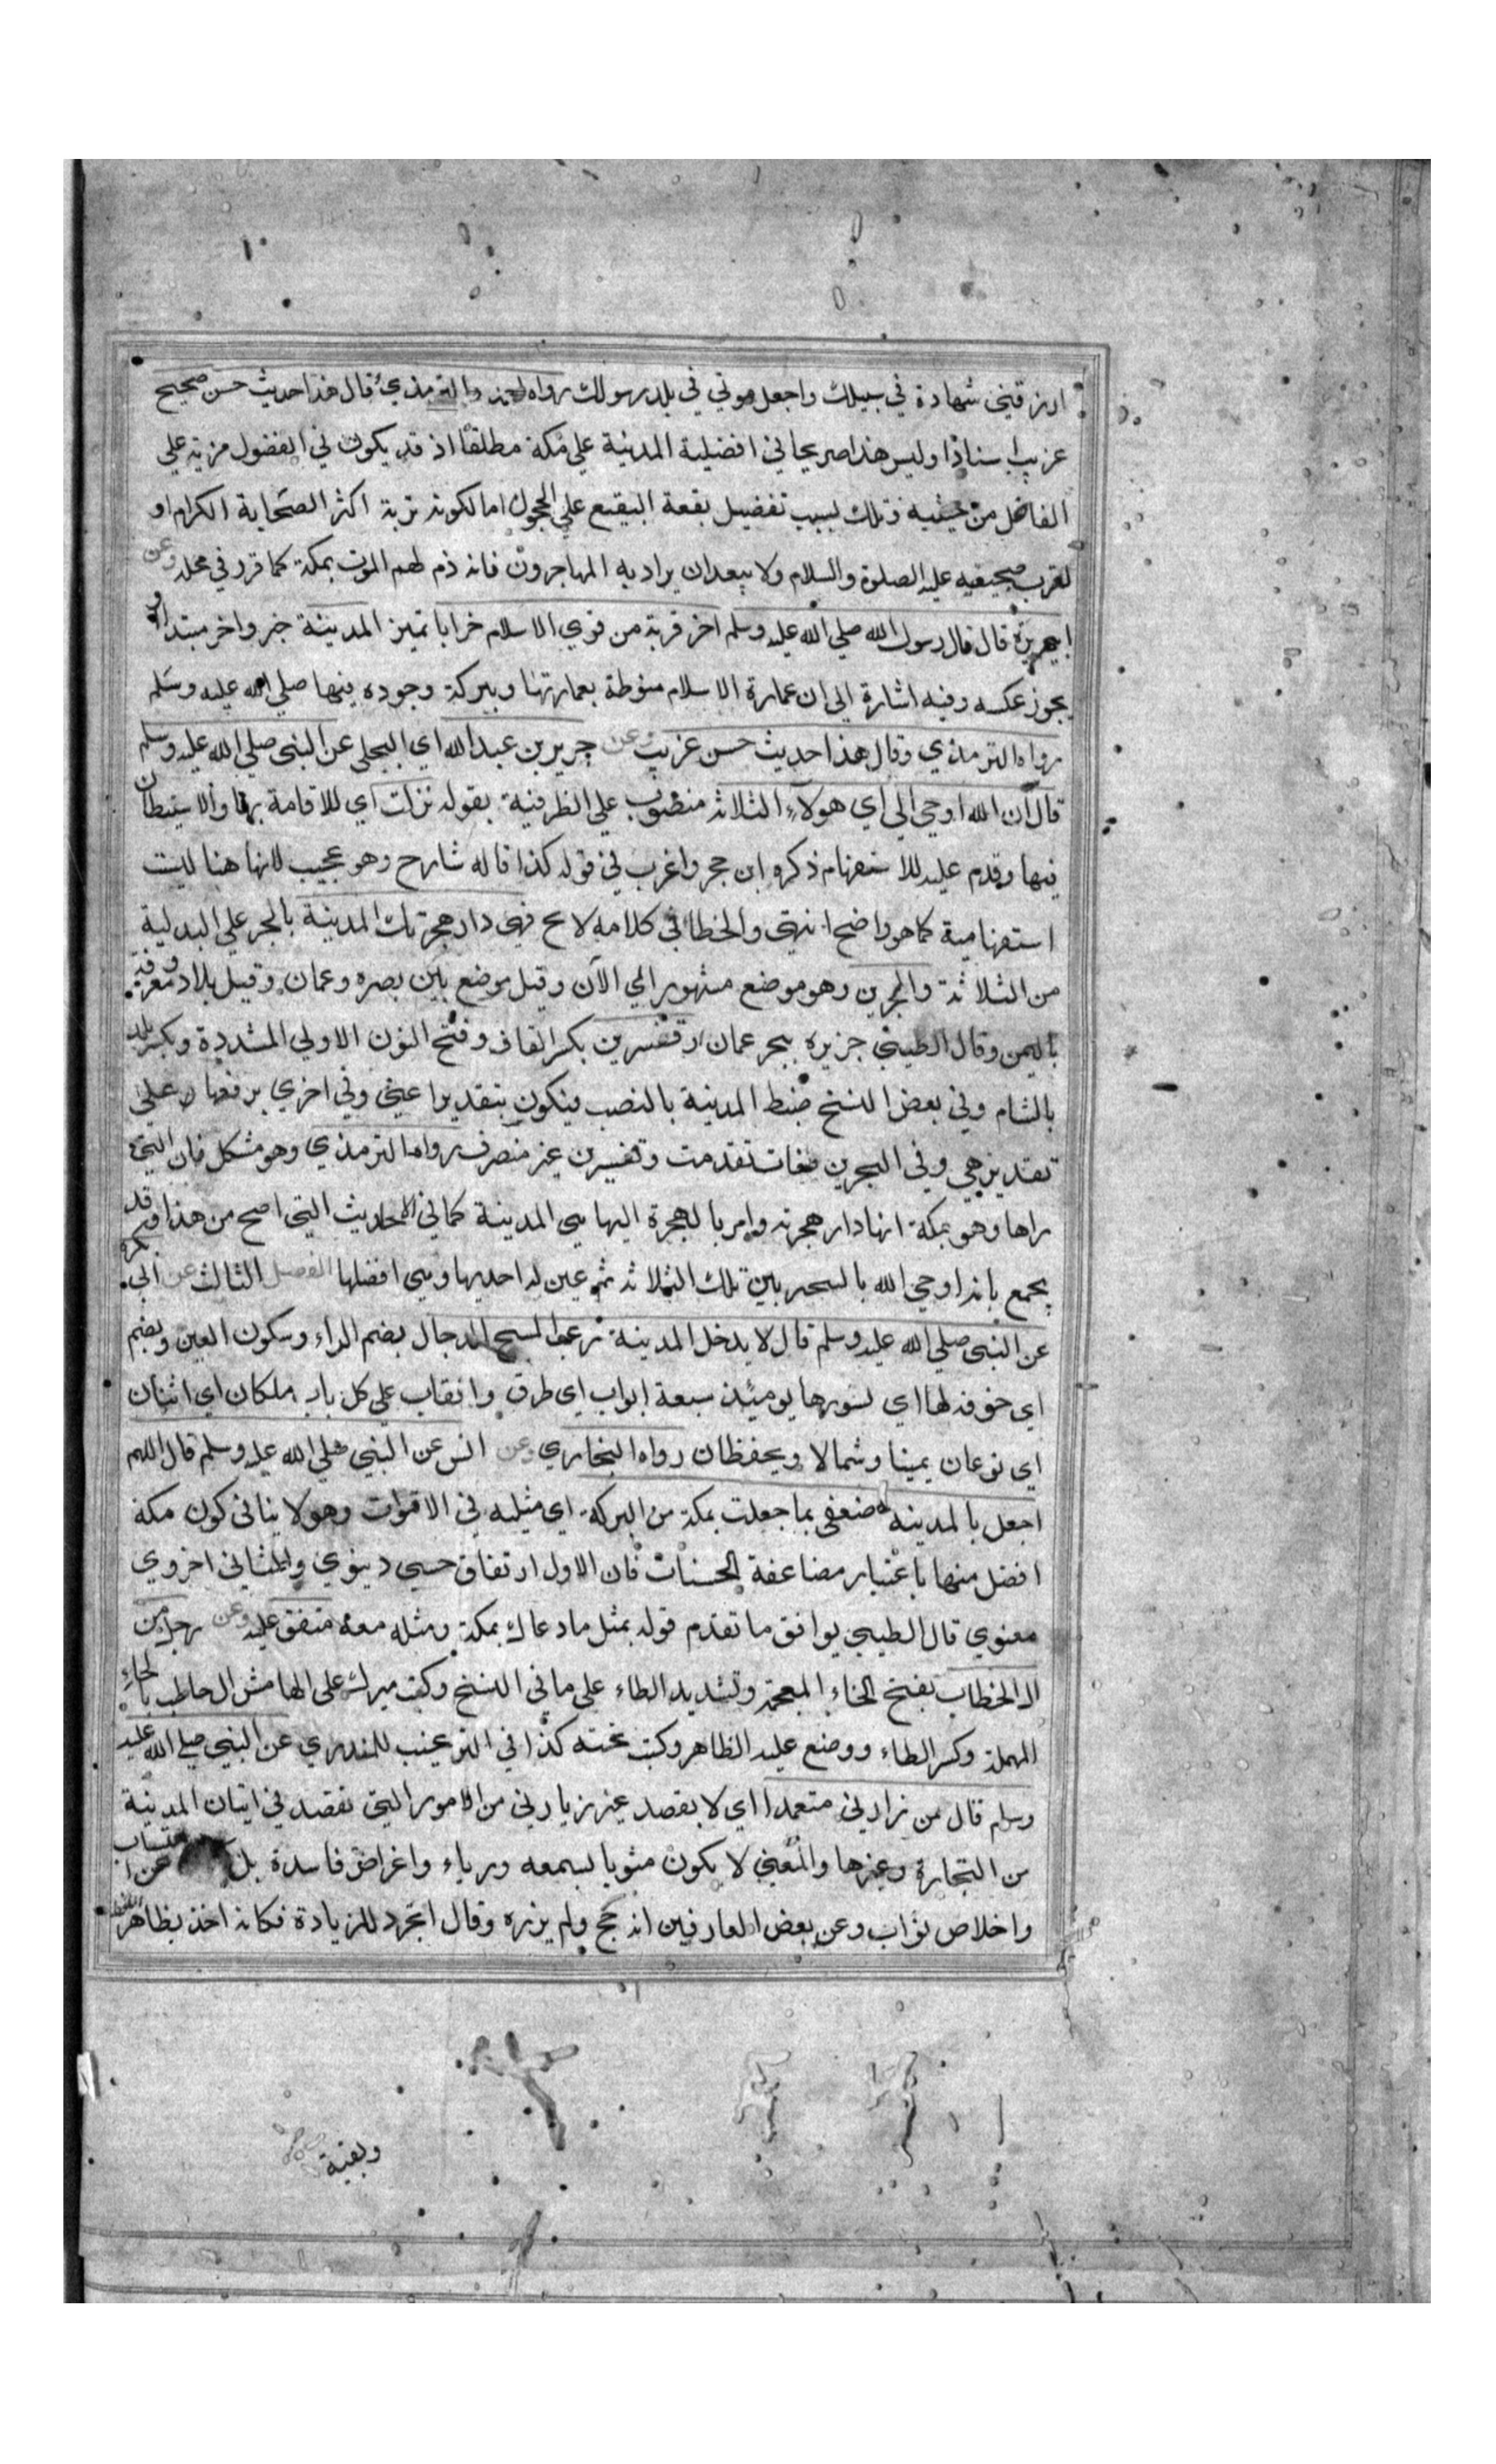 ١٠
ارزقني شهادة في سبيلك واجعل موتي في بلد رسولك رواه احمد والترمذي قال هذا حديث حسن صحيح
غريب اسنادا وليس هذا صريحا في افضلية المدينة علي مكة مطلقا اذ قد يكون في المفضول مزية علي
الفاضل من حيثية وتلك بسبب تفضيل بقعة البقيع علي الحجون اما لكونه تربة اكثر الصحابة الكرام او
لقرب ضجيعيه عليه الصلوة والسلام ولا يبعد ان يراد به المهاجرون فانه ذم لهم الموت بمكة كما قرر في محله وعن
ابي هريرة قال قال رسول الله صلي الله عليه وسلم اخر قرية من قري الاسلام خرابا تميز المدينة خبر واخر مبتدا و
يجوز عكسه وفيه اشارة الي ان عمارة الاسلام منوطة بعمارتها وببركة وجوده فيها صلي الله عليه وسلم
رواه الترمذي وقال هذا حديث حسن غريب وعن جرير بن عبد الله اي البجلي عن النبي صلي الله عليه وسلم
قال ان الله اوحي الي اي هولاء الثلاثة منصوب علي الظرفية بقوله نزلت اي للاقامة بها والاستيطان
فيها وقدم عليه للاستفهام ذكره ابن حجر واغرب في قوله كذا قاله شارح وهو عجيب لانها هنا ليست
استفهامية كما هو واضح انتهي والخطا في كلامه لا يح فهي دار هجرتك المدينة بالجر علي البدلية
من الثلاثة والبحرين وهو موضع مشهور الي الآن وقيل موضع بين بصره وعمان وقيل بلاد معروفة
باليمن وقال الطيبي جزيره ببحر عمان او قنسرين بكسر القاف وفتح النون الاولي المشددة ويكسر بلد
بالشام وفي بعض النسخ ضبط المدينة بالنصب فيكون بتقدير اعني وفي اخري برفعها علي
تقدير هي وفي البحرين لغات تقدمت وقنسرين غير منصرف رواه الترمذي وهو مشكل فان التي
راها وهو بمكة انها دار هجرته وامر بالهجرة اليها هي المدينة كما في الاحاديث التي اصح من هذا وقد
يجمع بانه اوحي الله بالتخير بين تلك الثلاثة ثم عين له احديها وهي افضلها الفصل الثالث عن ابي بكرة
عن النبي صلي الله عليه وسلم قال لا يدخل المدينة رعب المسيح الدجال بضم الراء وسكون العين ويضم
اي خوفه لها اي لسورها يومئذ سبعة ابواب اي طرق وانقاب علي كل باب ملكان اي اثنان
اي نوعان يمينا وشمالا ويحفظان رواه البخاري وعن انس عن النبي صلي الله عليه وسلم قال اللهم
اجعل بالمدينة ضعفي ما جعلت بمكة من البركة اي مثليه في الاقوات وهو لا ينافي كون مكة
افضل منها باعتبار مضاعفة الحسنات فان الاول ارتفاق حسي دنيوي والثاني اخروي
معنوي قال الطيبي يوافق ما تقدم قوله بمثل ما دعاك بمكة ومثله معه متفق عليه وعن رجل من
ال الخطاب بفتح الخاء المعجمة وتشديد الطاء علي ما في النسخ وكتب ميرك علي الهامش ال حاطب بالحاء
المهملة وكسر الطاء ووضع عليه الظاهر وكتب تحته كذا في الترغيب للمنذري عن النبي صلي الله عليه
وسلم قال من زارني متعمدا اي لا يقصد غير زيارتي من الامور التي تقصد في اتيان المدينة
من التجارة وغيرها والمعني لا يكون مشوبا بسمعة ورياء واغراض فاسدة بل عن احتساب
واخلاص ثواب وعن بعض العارفين انه حج ولم يزره وقال اتجرد للزيارة فكانه اخذ بظاهر
وبقية